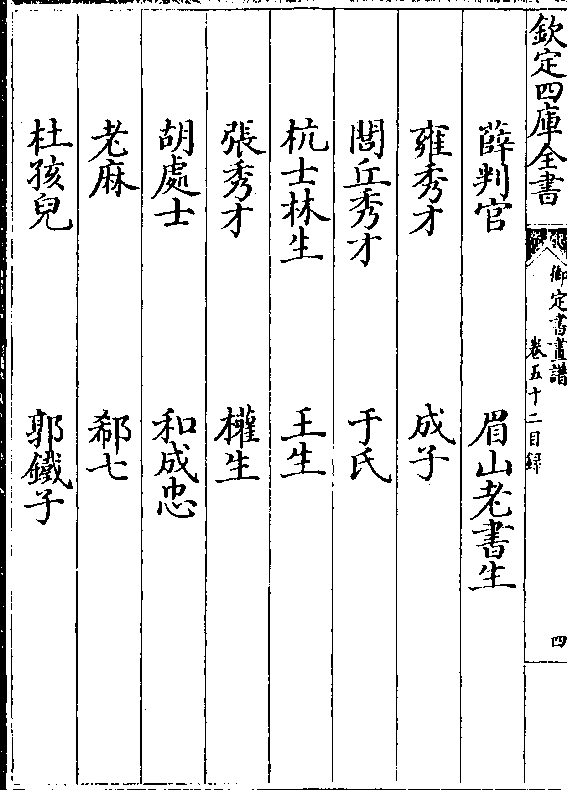 欽定四庫全書
御定書畫譜
卷五十二目録
四
薛判官　眉山老書生
雍秀才　成子
閭丘秀才　于氏
杭士林生　王生
張秀才　權生
胡處士　和成忠
老麻　郗七
杜孩兒　郭鐵子